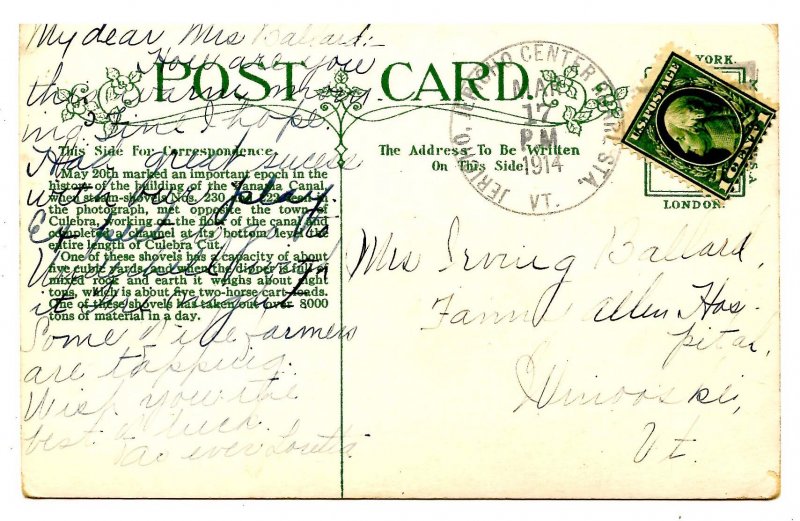 My dear Mrs Ballard:-
How are you
this warm morn
ing fine I hope.
Had great sucess
with our play
Some of the farmers
are tapping.
Wish you the
best of luck
As ever Loretta.
POST CARD.
This Side For Correspondence.
May 20th marked an important epoch in the
history of the building of the Panama Canal,
when steam-shovels Nos. 230 and 222, seen in
the photograph, met opposite the town of
Culebra, working on the floor of the canal and
completing a channel at its bottom level the
entire length of Culebra Cut.
One of these shovels has a capacity of about
five cubic yards, and when the dipper is full of
mixed rock and earth it weighs about eight
tons, which is about five two-horse cart-loads.
One of these shovels has taken out over 8000
tons of material in a day.
The Address To Be Written
On This Side
JERICHO, JERICHO CENTER RURAL STA.
MAR
17
P M
1914
VT.
YORK.
LONDON.
U.S. POSTAGE
1 CENT 1
Mrs Irving Ballard,
Fanny Allen Hos-
pital,
Winooski,
Vt.